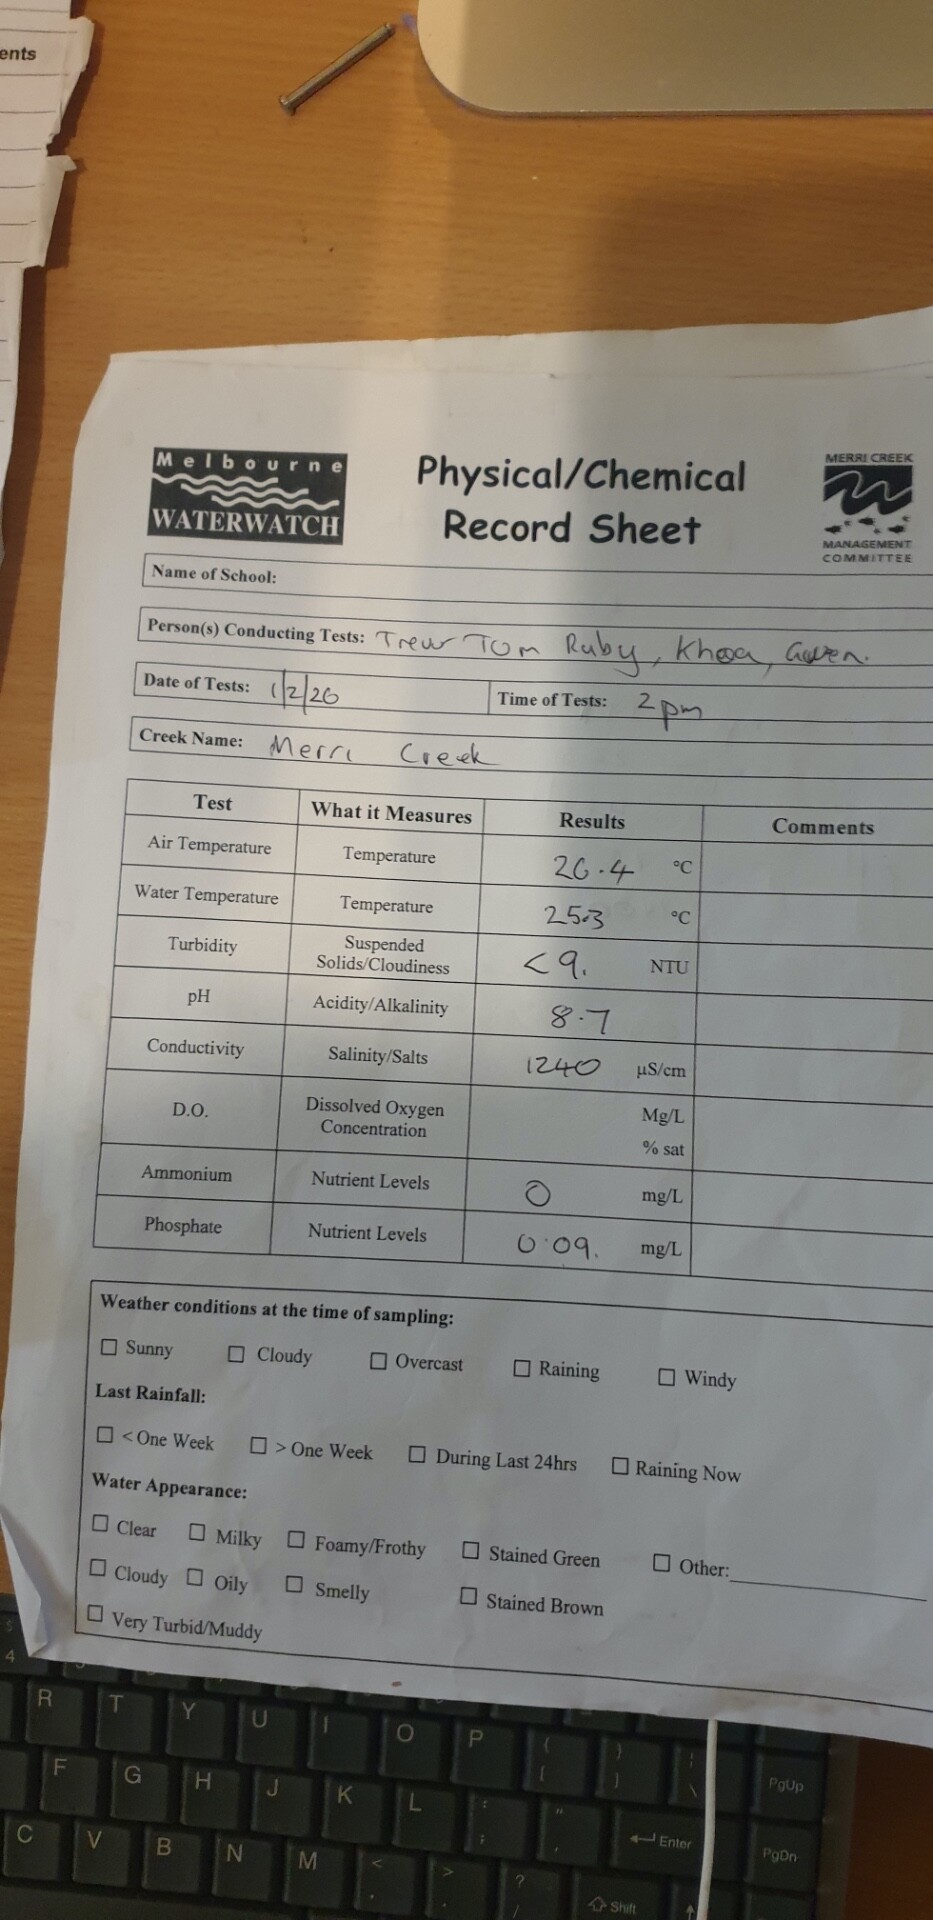 ents
Melbourne
WATERWATCH
Physical/Chemical
Record Sheet
MERRI CREEK
MANAGEMENT
COMMITTEE
Name of School:
Person(s) Conducting Tests: Tom Ruby, Khoa,
Date of Tests: 1/2/20 Time of Tests: 2pm
Creek Name: Merri Creek
Test What it Measures Results Comments
Air Temperature Temperature 26.4 °C
Water Temperature Temperature 25.3 °C
Turbidity Suspended Solids/Cloudiness <9. NTU
pH Acidity/Alkalinity 8.7
Conductivity Salinity/Salts 1240 µS/cm
D.O. Dissolved Oxygen Concentration Mg/L
% sat
Ammonium Nutrient Levels 0 mg/L
Phosphate Nutrient Levels 0.09. mg/L
Weather conditions at the time of sampling:
☐ Sunny ☐ Cloudy ☐ Overcast ☐ Raining ☐ Windy
Last Rainfall:
☐ < One Week ☐ > One Week ☐ During Last 24hrs ☐ Raining Now
Water Appearance:
☐ Clear ☐ Milky ☐ Foamy/Frothy ☐ Stained Green ☐ Other:
☐ Cloudy ☐ Oily ☐ Smelly ☐ Stained Brown
☐ Very Turbid/Muddy
$
4
R T Y U I O P { [ } ] | \ PgUp
F G H J K L : ; " ' Enter PgDn
C V B N M < , > . ? / Shift